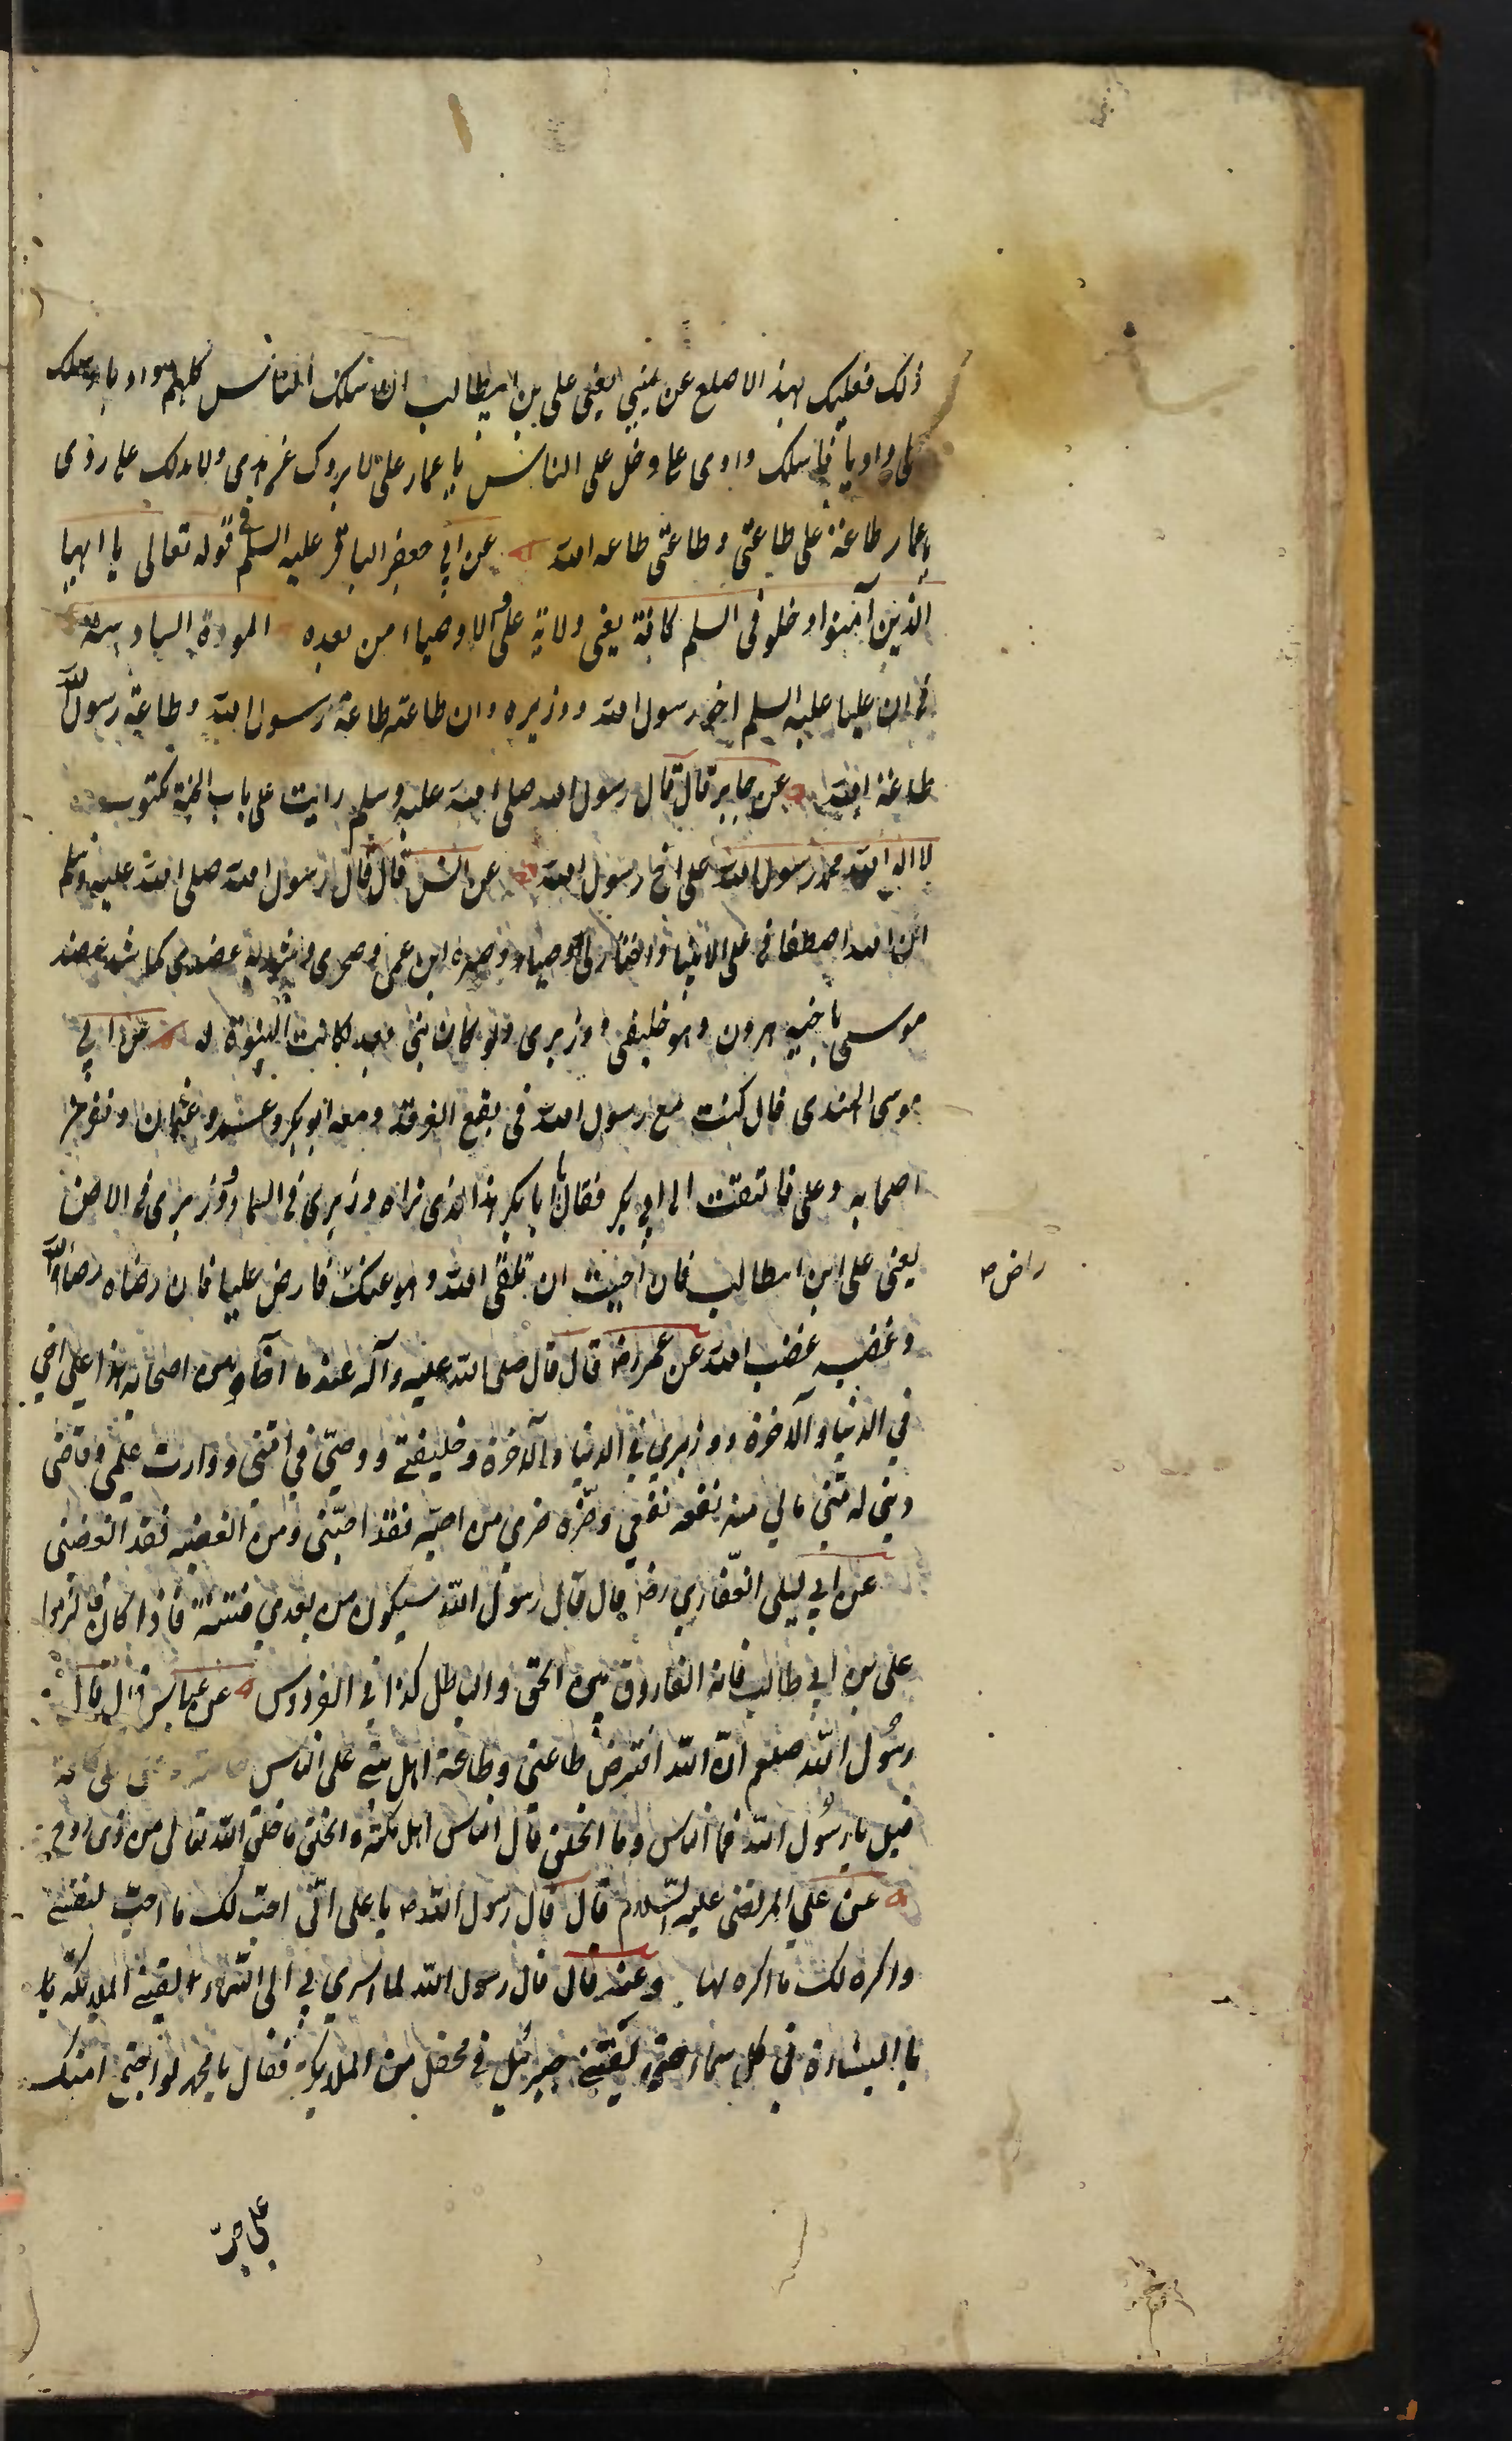 ذلك فعليك بهذا الاصلع عن يميني يعني علي بن ابيطالب ان سلك الناس كلهم واديا وسلك
علي واديا فاسلك وادى علي وخل على الناس يا عمار علي لا يردك عن هدى ولا يدلك على ردى
يا عمار طاعة علي طاعتي وطاعتي طاعة الله عن ابي جعفر الباقر عليه السلم في قوله تعالى يا ايها
الذين آمنوا ادخلو في السلم كافة يعني ولاية علي والاوصياء من بعده المودة السادسة
في ان عليا عليه السلم اخو رسول الله ووزيره وان طاعته طاعة رسول الله وطاعة رسول الله
طاعة الله عن جابر قال قال رسول الله صلى الله عليه وسلم رايت على باب الجنة مكتوب
لا اله الا الله محمد رسول الله علي اخا رسول الله عن انس قال قال رسول الله صلى الله عليه وسلم
ان الله اصطفاني على الانبيا واختار لي وصيا وخيره ابن عمي وصيي وشد به عضدي كما شد عضد
موسى باخيه هرون وهو خليفتي ووزيري ولو كان بعدي نبي لكانت النبوة له عن ابي
موسى الهندى قال كنت مع رسول الله في بقيع الغرقد ومعه ابوبكر وعمر وعثمان ونفر من
اصحابه وعلي فالتفت الى ابي بكر فقال يا ابا بكر هذا الذى تراه وزيري في السما ووزيري في الارض
يعني علي ابن ابيطالب فان احببت ان تلقى الله وهو عنك فارض عليا فان رضاه رضاء الله
راض صح
وغضبه غضب الله عن عمر رض قال قال صلى الله عليه وآله عند ما اخا بين اصحابه هذا علي اخي
في الدنيا والآخرة ووزيري في الدنيا والآخرة وخليفتي ووصيي في امتي ووارث علمي وقاضي
ديني له مني مالي منه نفعه نفعي وضره ضري من احبه فقد احبني ومن ابغضه فقد ابغضني
عن ابي ليلى الغفاري رض قال قال رسول الله سيكون من بعدي فتنة فاذا كان فالزموا
علي بن ابي طالب فانه الفاروق بين الحق والباطل كذا في الفردوس عن عباس قال قال
رسول الله صلعم ان الله افترض طاعتي وطاعة اهل بيتي على الناس
قيل يا رسول الله فما الناس وما الخلق قال الناس اهل مكة والخلق ما خلق الله تعالى من ذي روح
عن علي المرتضى عليه السلام قال قال رسول الله ص يا علي اني احب لك ما احب لنفسي
واكره لك ما اكره لها وعنه قال قال رسول الله لما اسري بي الى السماء تلقتني الملايكة با
با البشارة في كل سماء حتى لقيني جبرئيل في محفل من الملايكة فقال يا محمد لو اجتمع امتك
على حب